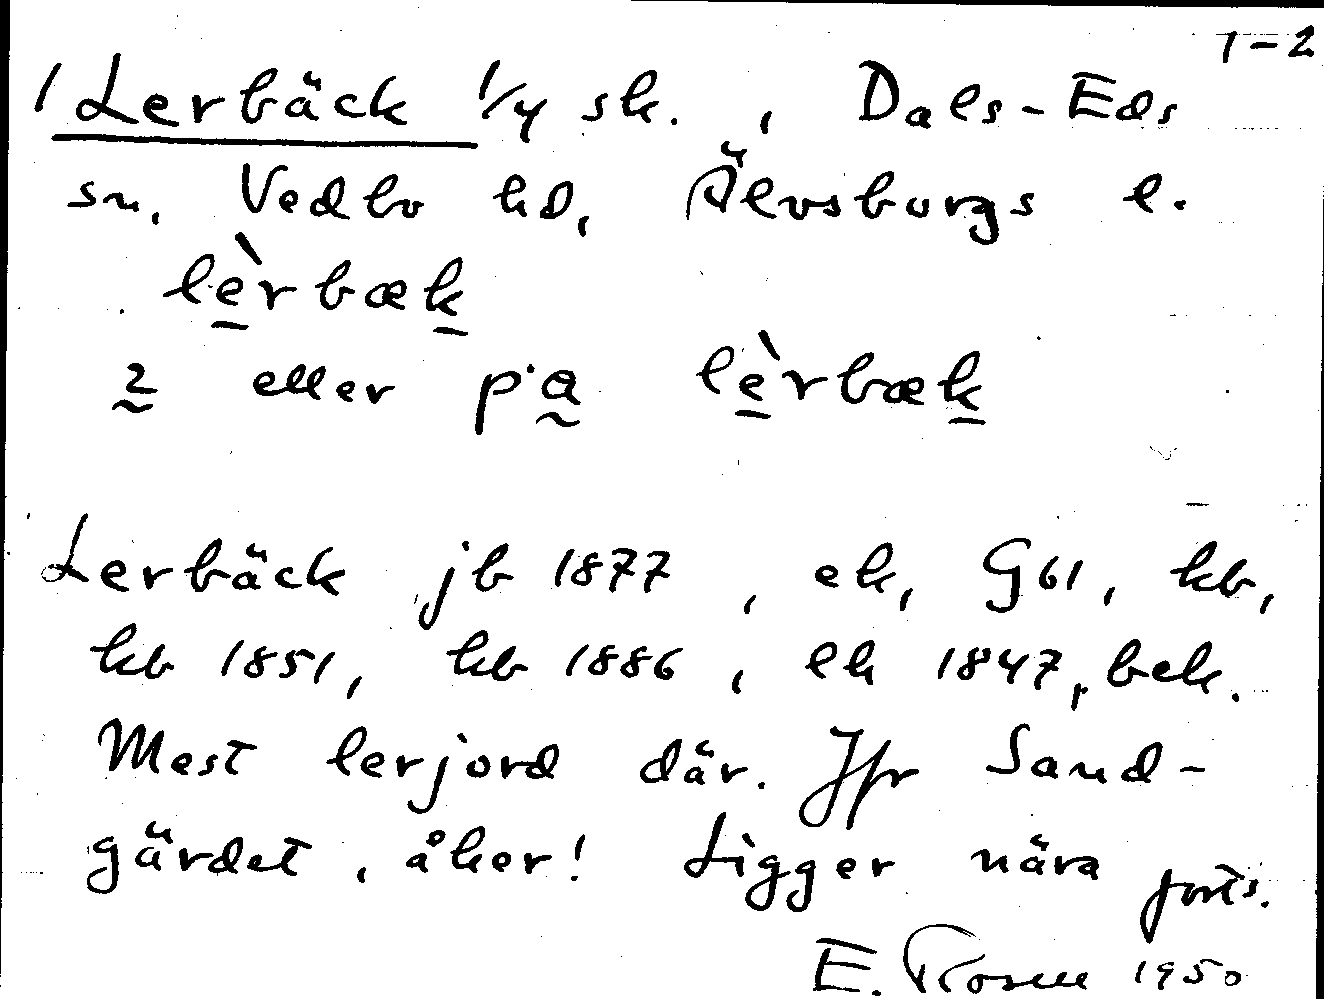 1-2
1 Lerbäck 1/4 sk. , Dals-Eds
sn, Vedbo hd, Älvsborgs l.
lèrbæk
2 eller pa lèrbæk
Lerbäck jb 1877, ek, G61, kb,
kb 1851, kb 1886, ek 1847, bek.
Mest lerjord där. Jfr Sand-
gärdet, åker! Ligger nära forts.
E. Rosell 1950